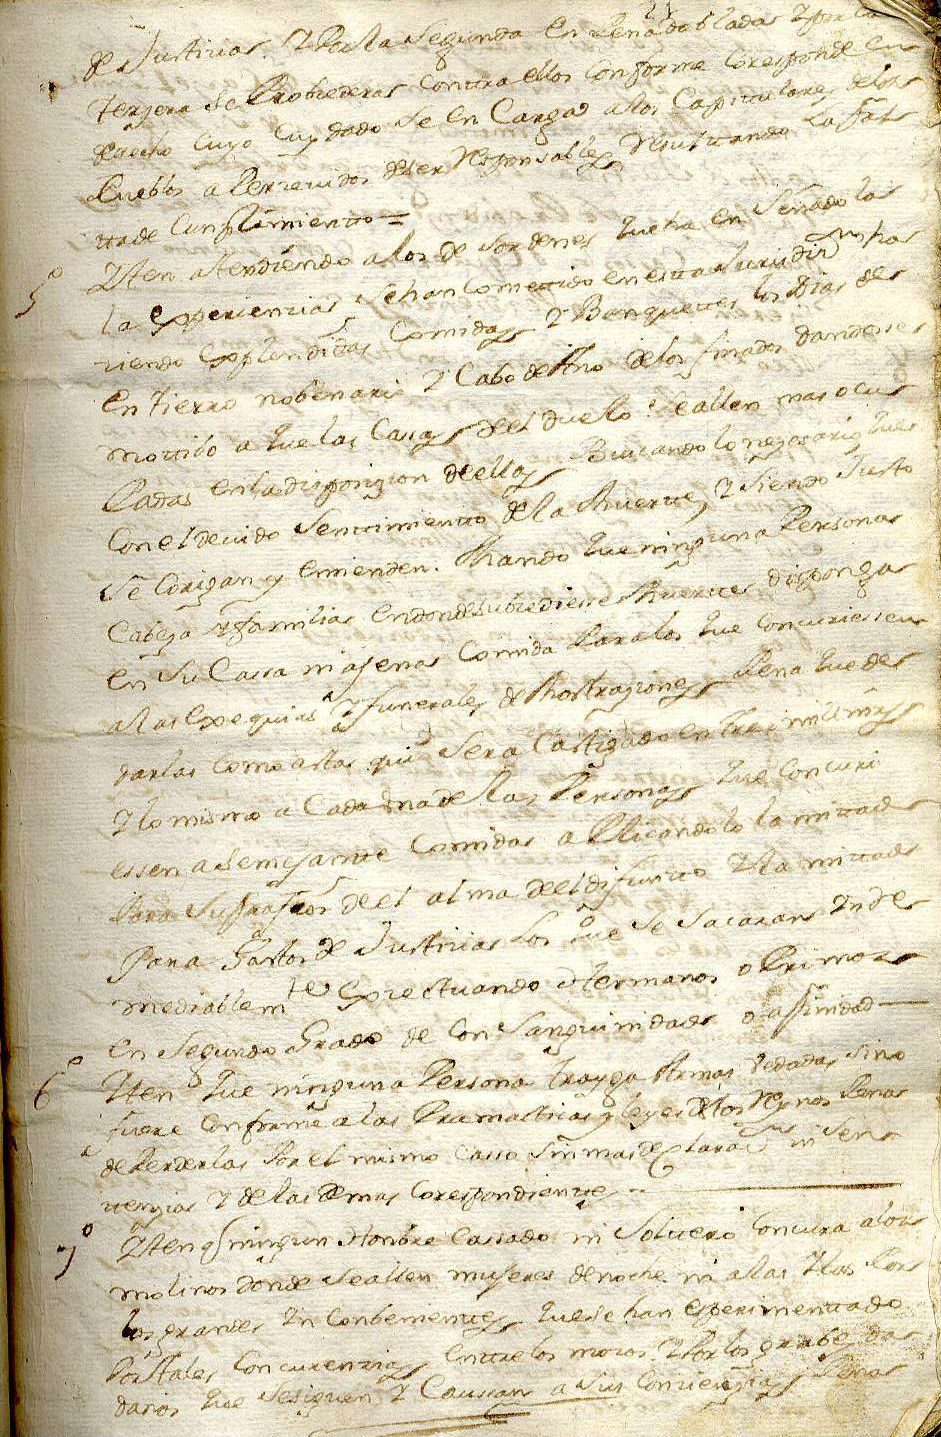 21
de Justicias. Y Por la segunda En Pena doblada Y por la
terzera se Probedera contra ellos Conforme Coresponde en
derecho cuyo cuydado se en Carga a los Capitulares de los
Pueblos a Perzeuidos de ser Responsables Resultando la falt
tta de Cunplimientto =
5º Yten attendiendo a los desordenes que ha en Señado la
la experienzias se han Comettido en estta Juridiz.on ha
ziendo Explendidas Comidas Y Banquettes los Dias de
En tierro nobenario Y Cabo de Año de los finados dandose
mottibo a que las Casas del duelo se allen mas ocu
Padas en la disposizion de ellos Buscando lo nezesario que
Con el deuido Senttimientto de la Muertte, Y siendo Justo
se Corigan y enmienden. Mando que ninguna Persona
Cabeza de familias en donde subzediere Muerttes disponga
en su Cassa ni ajenas Comida Para los que Concuriessen
a las Exequias Y funerales de Mostraziones Pena que de
darlas como astta aqui Sera Casttigado en tres mill mrs
Y lo mismo a Cada una de las Personas que Concuri
essen a Semejantte Comidas a Plicandolo la mittad
Para Sufragios de el alma del difuntto Y la mittad
Para Gastos de Justicias los que se Sacaran Ynde
mediablemte Exzectuando Hermanos o Primos
en segundo Grado de Consanguinidad o afinidad
6º Yten que ninguna Persona trayga Armas Vedadas sino
fuere Conforme a las Pramaticas y leyes de los Reynos Pena
de Perderlas Por el mismo Casso sin mas declaraz.on ni Sen
tenzias Y de las demas Corespondienttes
7º Yten q ningun Honbre Cassado ni Soltero Concura a los
molinos donde se allen mujeres de noche ni a las Ylas Por
los grandes Yn Conbenienttes que se han esperimenttado
Por tales Concurenzias enttre los mozos Y Por los grabes da
danos que se siguen Y Caussan a sus Conzienzias Pena